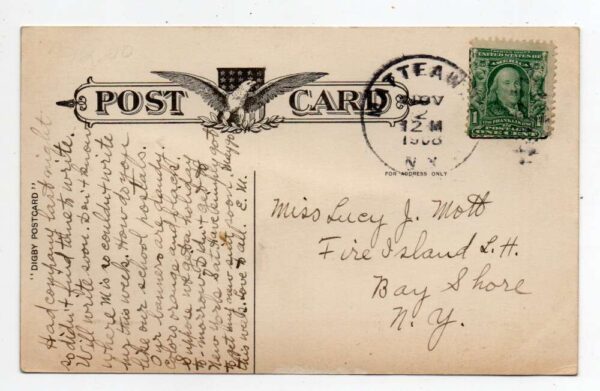 POST CARD
UNITED STATES OF AMERICA
1
1
FRANKLIN
POSTAGE
ONE CENT
TTEAW
NOV
2
12 M
1908
N.Y.
FOR ADDRESS ONLY
"DIGBY POSTCARD"
Had company last night
so didn't find time to write.
Will write soon. Don't know
where M is so couldn't write
my this week. How do you
like our school postals.
Our banners are dandy
Colors orange and black.
Suppose we get a holiday
to-morrow. Didn't get to
New York Sat. Have simply got
to get my new suit soon.
this week. Love to all. E. M.
Miss Lucy J. Mott
Fire Island L.H.
Bay Shore
N.Y.